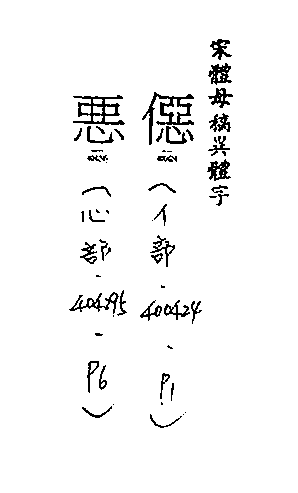 宋體母稿異體字
僫（亻部-400424-P1）
悪（心部-404895-P6）